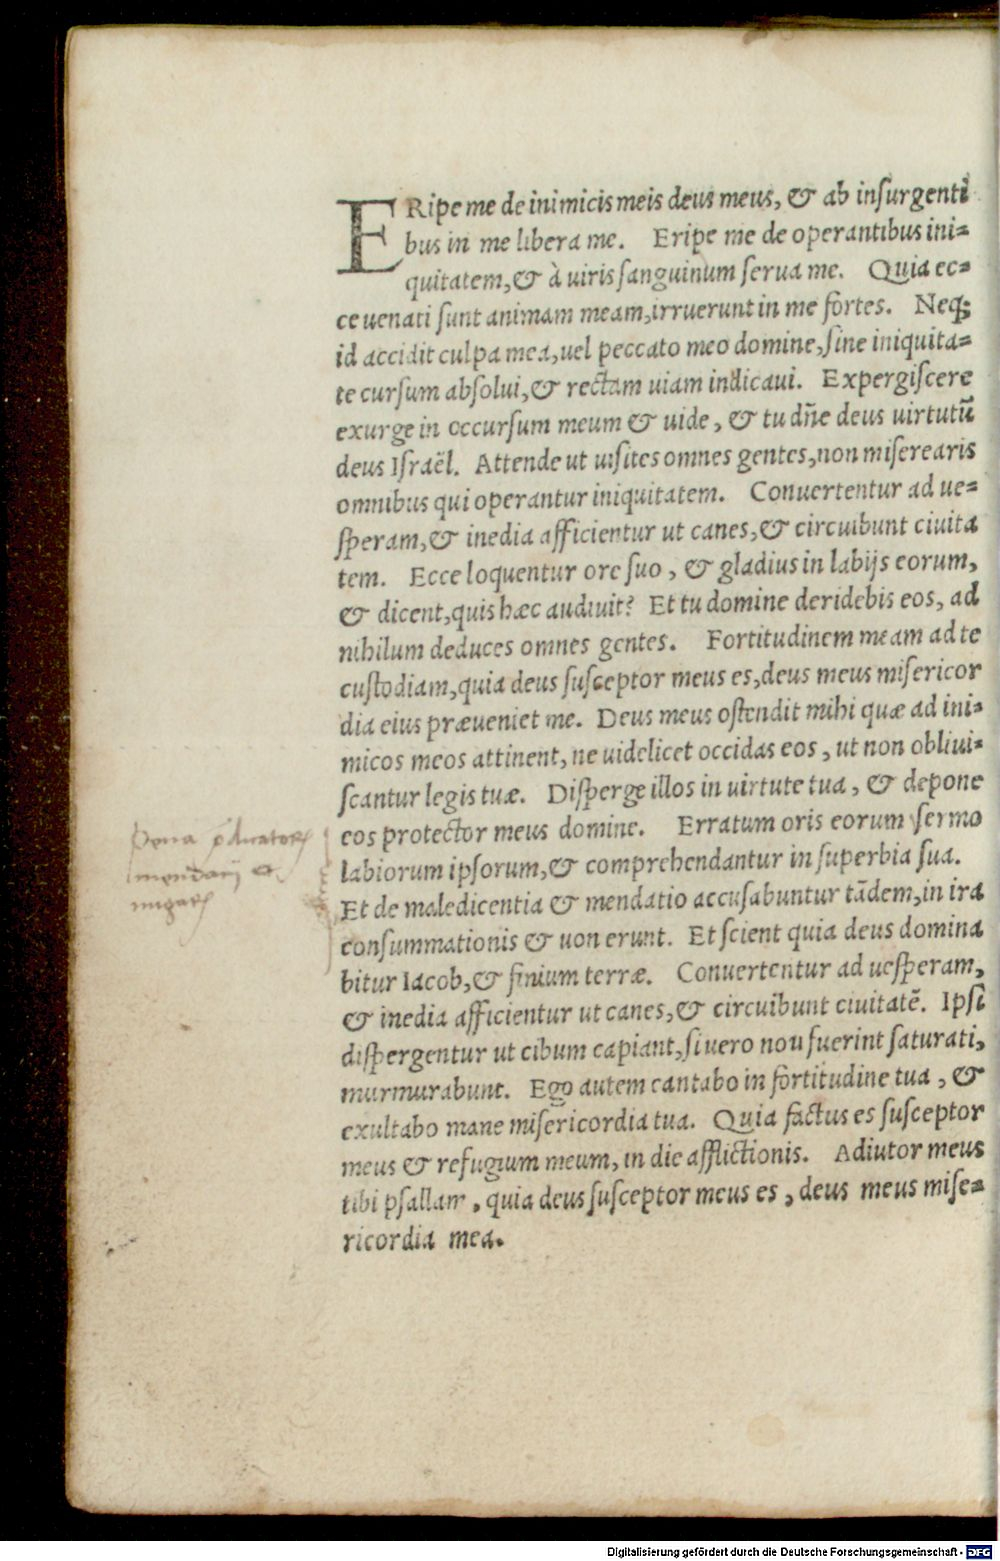 ERipe me de inimicis meis deus meus, & ab inſurgenti
bus in me libera me. Eripe me de operantibus ini=
quitatem, & à uiris ſanguinum ſerua me. Quia ec=
ce uenati ſunt animam meam, irruerunt in me fortes. Neq;
id accidit culpa mea, uel peccato meo domine, ſine iniquita=
te curſum abſolui, & rectam uiam indicaui. Expergiſcere
exurge in occurſum meum & uide, & tu dñe deus uirtutū
deus Iſraël. Attende ut uiſites omnes gentes, non miſerearis
omnibus qui operantur iniquitatem. Conuertentur ad ue=
ſperam, & inedia afficientur ut canes, & circuibunt ciuita
tem. Ecce loquentur ore ſuo, & gladius in labijs eorum,
& dicent, quis hæc audiuit? Et tu domine deridebis eos, ad
nihilum deduces omnes gentes. Fortitudinem meam ad te
cuſtodiam, quia deus ſuſceptor meus es, deus meus miſericor
dia eius præueniet me. Deus meus oſtendit mihi quæ ad ini=
micos meos attinent, ne uidelicet occidas eos, ut non obliui=
ſcantur legis tuæ. Diſperge illos in uirtute tua, & depone
eos protector meus domine. Erratum oris eorum ſermo
labiorum ipſorum, & comprehendantur in ſuperbia ſua.
Et de maledicentia & mendatio accuſabuntur tādem, in ira
conſummationis & uon erunt. Et ſcient quia deus domina
bitur Iacob, & finium terræ. Conuertentur ad ueſperam,
& inedia afficientur ut canes, & circuibunt ciuitatē. Ipſi
diſpergentur ut cibum capiant, ſi uero non fuerint ſaturati,
murmurabunt. Ego autem cantabo in fortitudine tua, &
exultabo mane miſericordia tua. Quia factus es ſuſceptor
meus & refugium meum, in die afflictionis. Adiutor meus
tibi pſallam, quia deus ſuſceptor meus es, deus meus miſe=
ricordia mea.
Digitalisierung gefördert durch die Deutsche Forschungsgemeinschaft - DFG